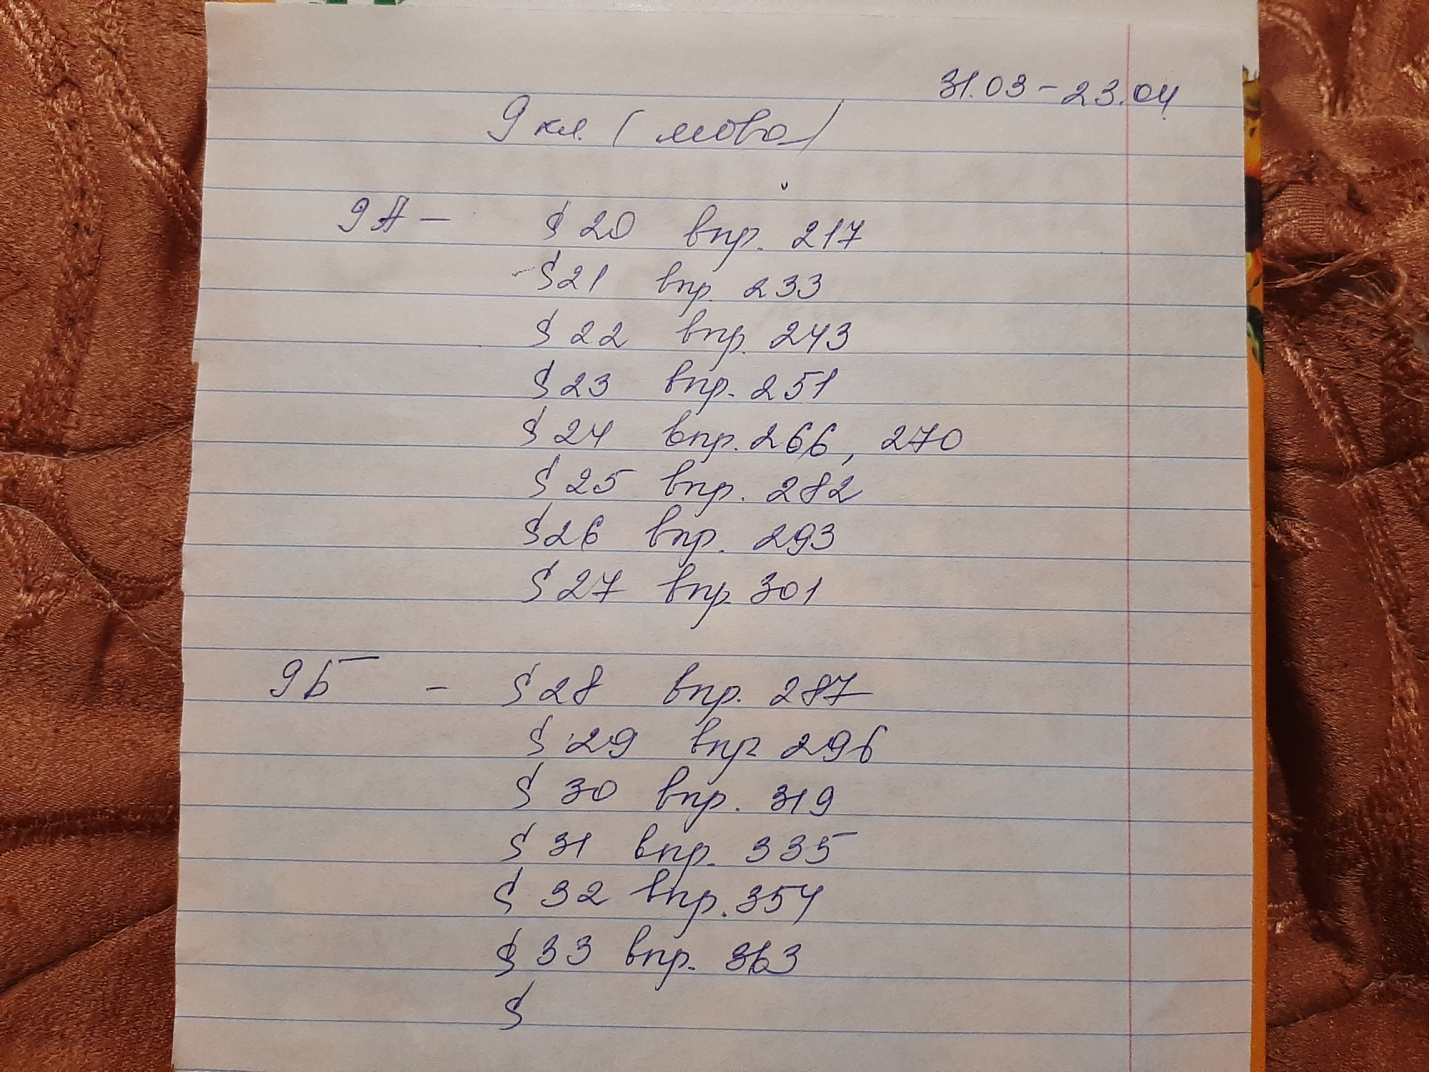 31.03 - 23.04
9 кл. (мова)
9А - § 20 впр. 217
§ 21 впр. 233
§ 22 впр. 243
§ 23 впр. 251
§ 24 впр. 266, 270
§ 25 впр. 282
§ 26 впр. 293
§ 27 впр. 301
9Б - § 28 впр. 287
§ 29 впр 296
§ 30 впр. 319
§ 31 впр. 335
§ 32 впр. 354
§ 33 впр. 363
§